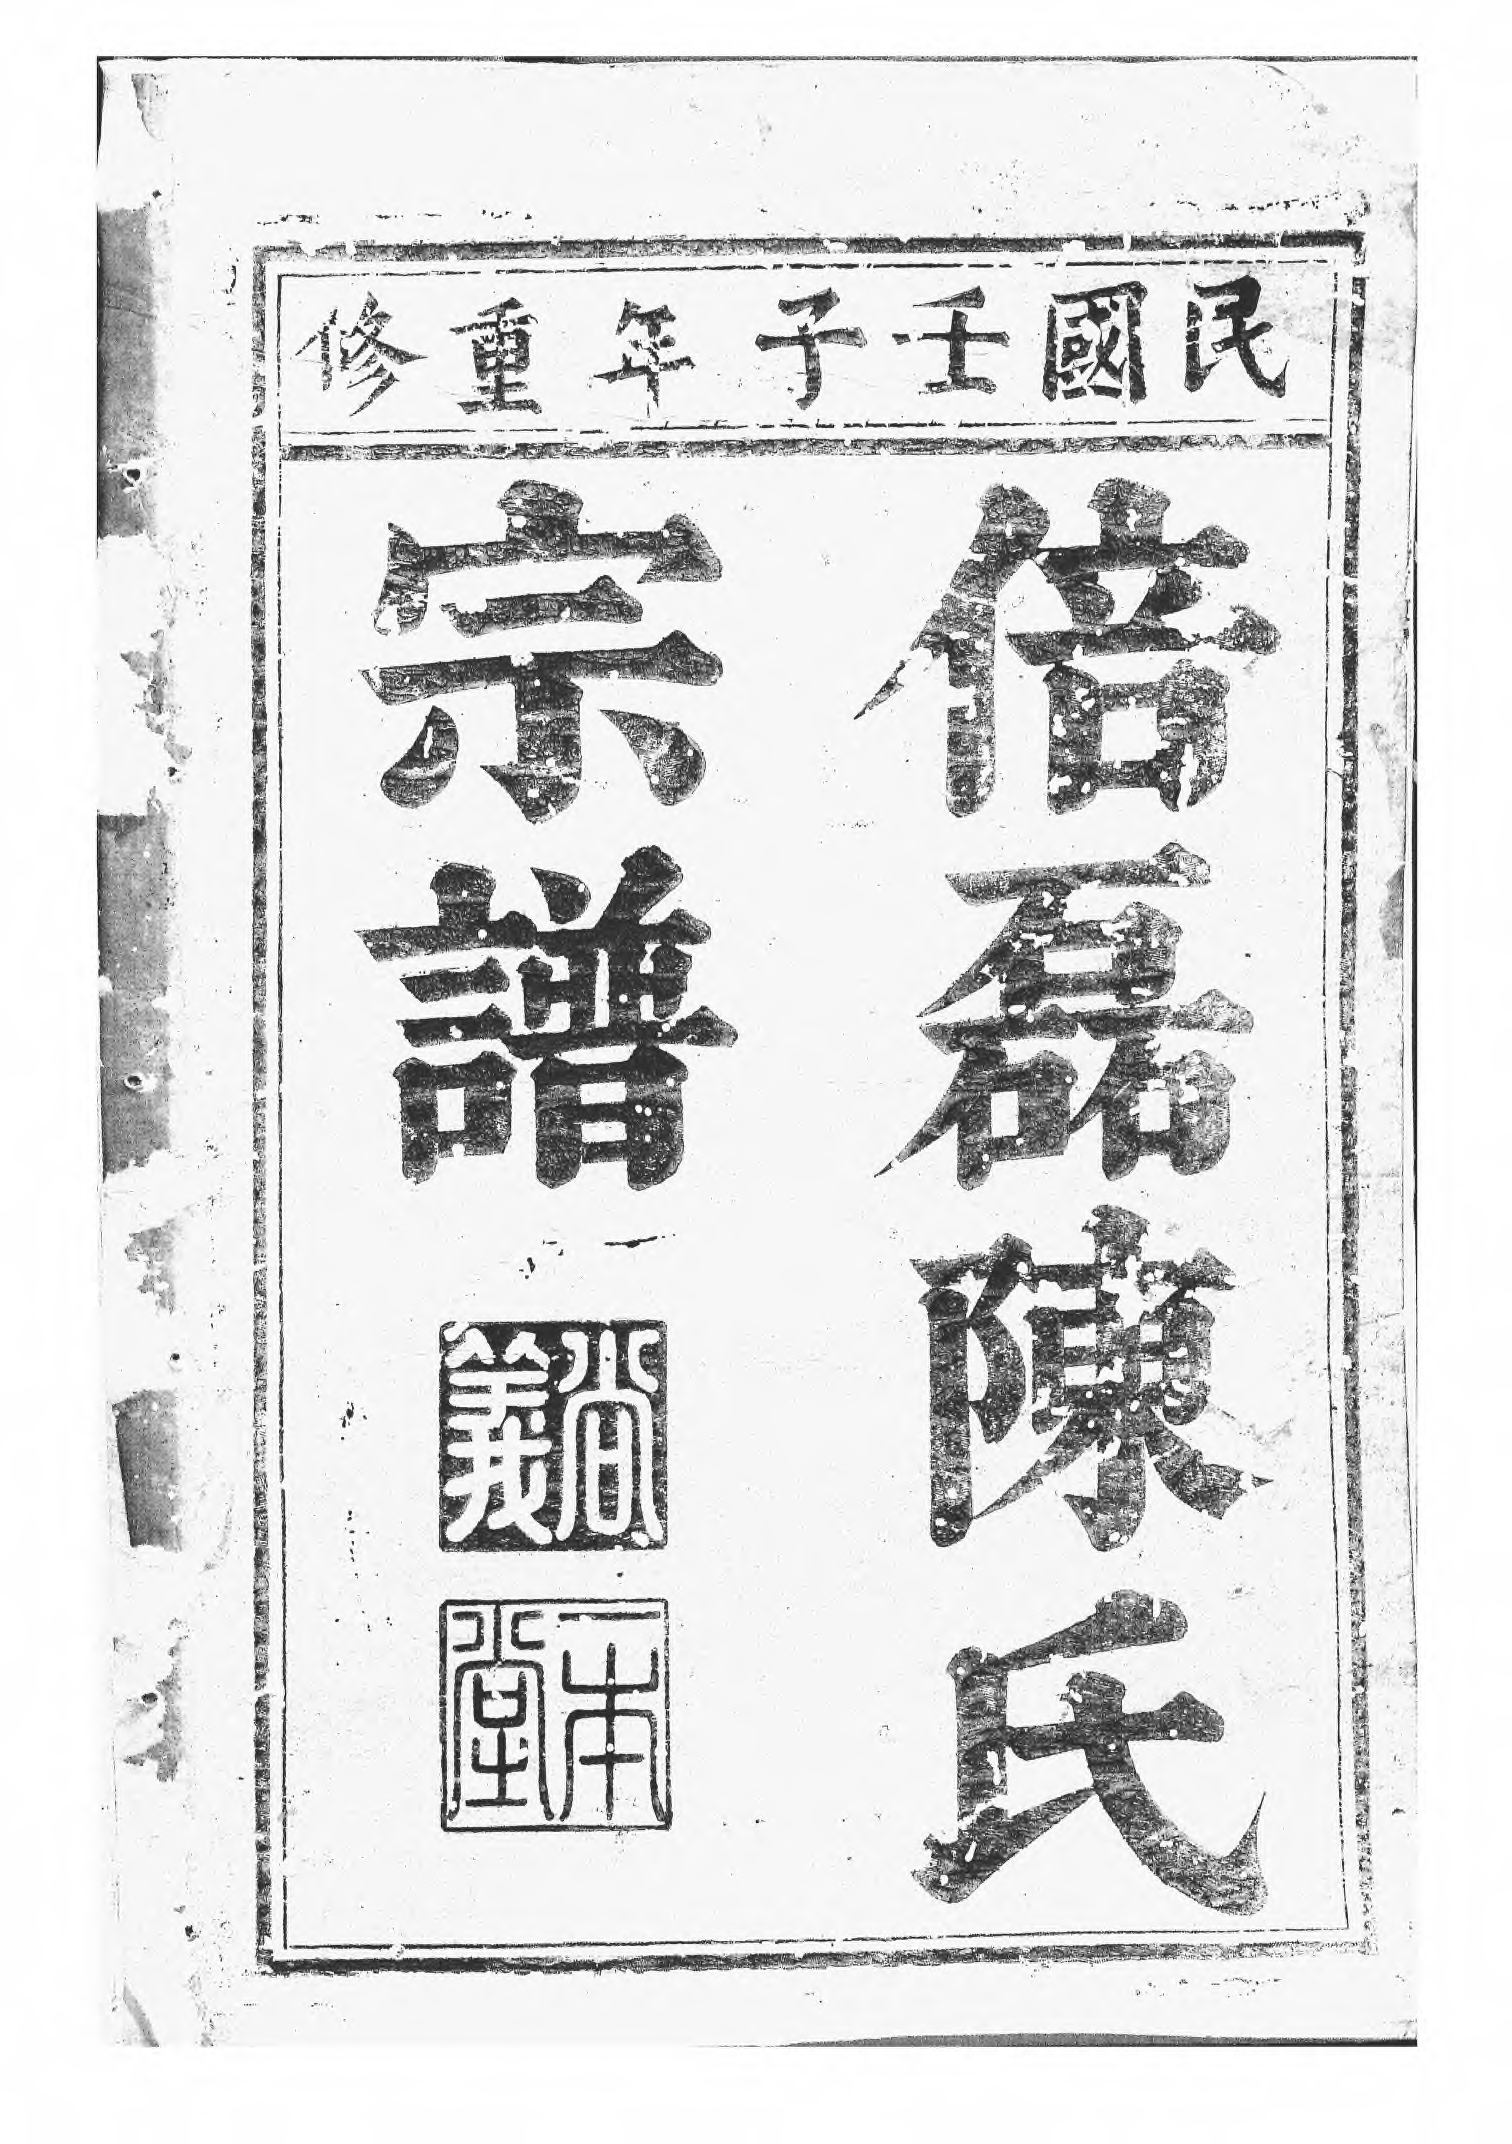 民國壬子年重修
倍磊陳氏
宗譜
尚義
一本堂